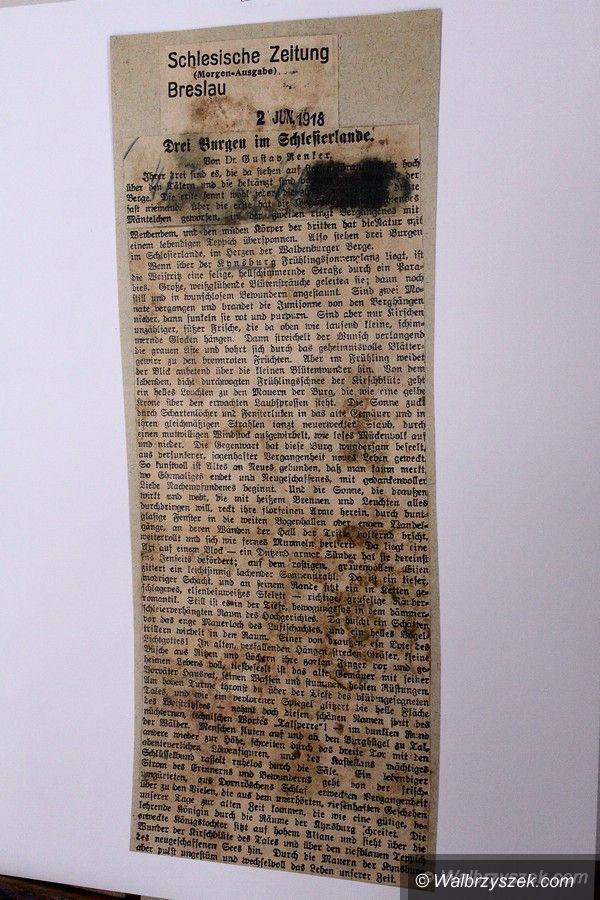 Schlesische Zeitung
(Morgen-Ausgabe)
Breslau
2 JUN. 1918
Drei Burgen im Schlesierlande.
Von Dr. Gustav Renker.
Ihrer drei sind es, die da stehen auf hoch
über den Tälern und die bekränzt sind der
Berge. Die erste kennt wohl
fast niemand. Über die erste hat die Gegenwart
Mäntelchen geworfen, zweiten ringt Vergangenes mit
Werdendem, und den müden Körper der dritten hat die Natur mit
einem lebendigen Teppich übersponnen. Also stehen drei Burgen
im Schlesierland, im Herzen der Waldenburger Berge.
Wenn über der Kynsburg Frühlingssonnenglanz liegt, ist
die Weistritz eine selige, hellschimmernde Straße durch ein Para-
dies. Große, weißglühende Blütensträuche geleiten sie; dann noch
still und in wunschlosem Bewundern angestaunt. Sind zwei Mo-
nate vergangen und brandet die Junisonne von den Berghängen
nieder, dann funkeln sie rot und purpurn. Sind aber nur Kirschen
unzähliger, süßer Frische, die da oben wie tausend kleine, schim-
mernde Glocken hängen. Dann streichelt der Wunsch verlangend
die grauen Äste und bohrt sich durch das geheimnisvolle Blätter-
gewirr zu den brennroten Früchten. Aber im Frühling weidet
der Blick anbetend über die kleinen Blütenwunder hin. Von dem
lebenden, dicht durchwogten Frühlingsschnee der Kirschblüte geht
ein helles Leuchten zu den Mauern der Burg, die wie eine gelbe
Krone über den erwachten Laubsprossen steht. Die Sonne zuckt
durch Schartenlöcher und Fensterluken in das alte Gemäuer und in
ihren gleichmäßigen Strahlen tanzt neuerweckter Staub, durch
einen mutwilligen Windstoß aufgewirbelt, wie loses Mückenvolk auf
und nieder. Die Gegenwart hat diese Burg wundersam beseelt,
aus versunkener, sagenhafter Vergangenheit neues Leben geweckt.
So kunstvoll ist Altes an Neues gebunden, daß man kaum merkt,
wo Ehemaliges endet und Neugeschaffenes, mit gedankenvoller
Liebe Nachempfundenes beginnt. Und die Sonne, die draußen
wirkt und webt, die mit heißem Brennen und Leuchten alles
durchdringen will, reckt ihre florfeinen Arme herein, durch bunt-
glasige Fenster in die weiten Bogenhallen oder engen Wandel-
gänge, an deren Wänden der Hall der Tritte polternd bricht,
weiterrollt und sich wie fernes Murmeln verliert. Da liegt eine
Axt auf einem Block — ein Dutzend armer Sünder hat sie dereinst
ins Jenseits befördert; auf dem rostigen, grauenvollen Eisen
zittert ein leichtsinnig lachender Sonnenstrahl. Da ist ein tiefer,
modriger Schacht, und an seinem Rande sitzt ein in Ketten ge-
schlagenes, elfenbeinweißes Skelett — richtige, gruselige Räuber-
romantik. Still ist es in der Tiefe, bewegungslos in dem dämmer-
schleierverhängten Raum des Hochgerichtes. Da huscht ein Schatten
vor das enge Mauerloch des Luftschachtes, und ein helles Vogel-
trillern wirbelt in den Raum. Einer von draußen, ein Bote des
Lichtgottes! In alten, verfallenden Hängen strecken Gräser, kleine
Büsche aus Ritzen und Löchern ihre zarten Finger vor und ge-
heimen Lebens voll, tiefbeseelt ist das alte Gemäuer mit seiner
Vorväter Hausrat, seinen Waffen und stummen, hohlen Rüstungen.
Am hohen Turme thronst du über der Tiefe des blühengesegneten
Tales, und wie ein verlorener Spiegel glitzert die helle Fläche
des Weistritzsees — nehmt doch diesen schönen Namen statt des
nüchternen, technischen Wortes „Talsperre"! — im dunklen Rund
der Wälder. Menschen fluten auf und ab, den Burghügel zu Tal,
andere wieder zur Höhe, schreiten durch das breite Tor mit den
abenteuerlichen Löwenfiguren, und des Kastellans mächtiges
Schlüsselbund rasselt ruhelos durch die Säle. Ein lebendiger
Strom des Erinnerns und Bewunderns geht von der frisch-
umgürteten, aus Dornröschens Schlaf erweckten Vergangenheit
zu den Vielen, die aus dem unerhörten, riesenhaften Geschehen
unserer Tage zur alten Zeit kommen, die wie eine gütige, be-
lehrende Königin durch die Räume der Kynsburg schreitet. Die
erweckte Königstochter sitzt auf hohem Altane und sieht über die
Wunder der Kirschblüte des Tales und über den tiefblauen Teppich
des neugeschaffenen Sees hin. Durch die Mauern der Kynsburg
aber pulst ungestüm und wechselvoll das Leben unserer Zeit.
© Walbrzyszek.com